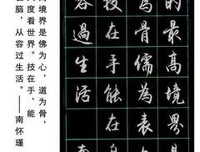 的最高境界是
為骨儒為表
技在手能在
容過生活南
境界是佛为心，道为骨，
度看世界。技在手，能
在脑，从容过生活。——南怀瑾